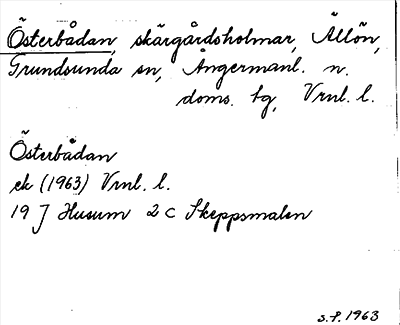 Österbådan, skärgårdsholmar, Ällön,
Grundsunda sn, Ångermanl. n.
doms. bg, Vrnl. l.
Österbådan
ek (1963) Vrnl. l.
19 J Husum 2 c Skeppsmalen
S.F. 1963